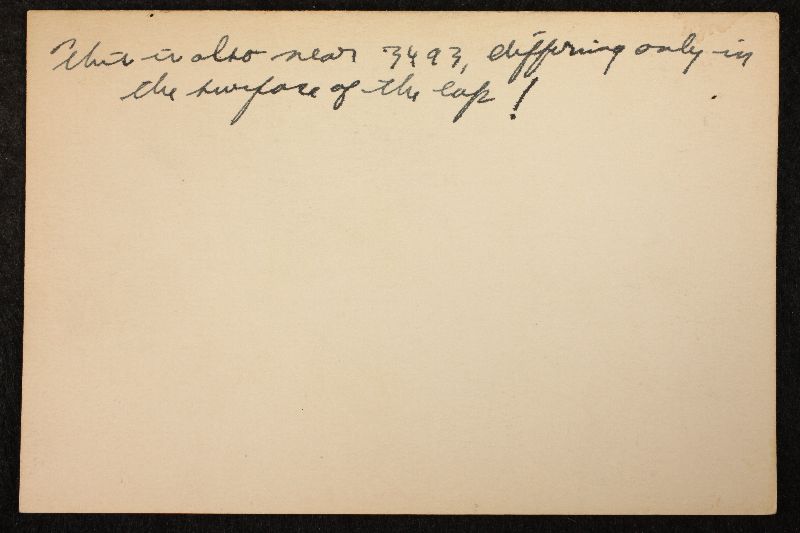 This is also near 3493, differing only in
the surface of the cap!